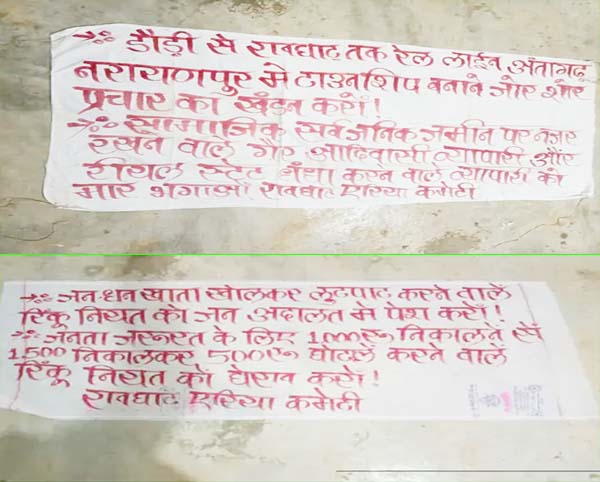 →ः डौंड़ी से रावघाट तक रेल लाईन अंतागढ़
नारायणपुर मे टाउनशिप बनाने जोर शोर
प्रचार का खंडन करो!
→ः सामाजिक सर्वजनिक जमीन पर नजर
रखने वाले गैर आदिवासी व्यापारी और
रीयल स्टेट धंधा करने वाले व्यापारी को
मार भगाओ रावघाट एरिया कमेटी
→ः जन-धन खाता खोलकर लुटपाट करने वाले
रिंकू नियत को जन अदालत मे पेश करो!
→ः जनता जरूरत के लिए 1000रू निकालने से
1500 निकालकर 500रू घोटाले करने वाले
रिंकू नियत को घेराव करो!
रावघाट एरिया कमेटी